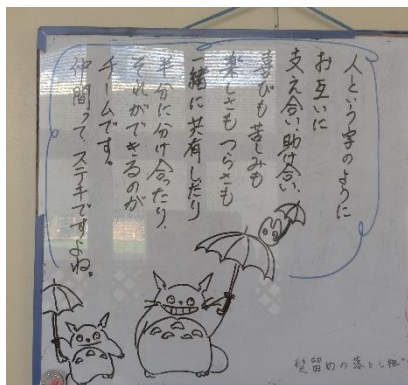 人という字のように
お互いに
支え合い、助け合い、
喜びも苦しみも
楽しさもつらさも
一緒に共有したり
半分に分け合ったり、
それができるのが
チームです。
仲間って、ステキですよね。
留めの落とし物